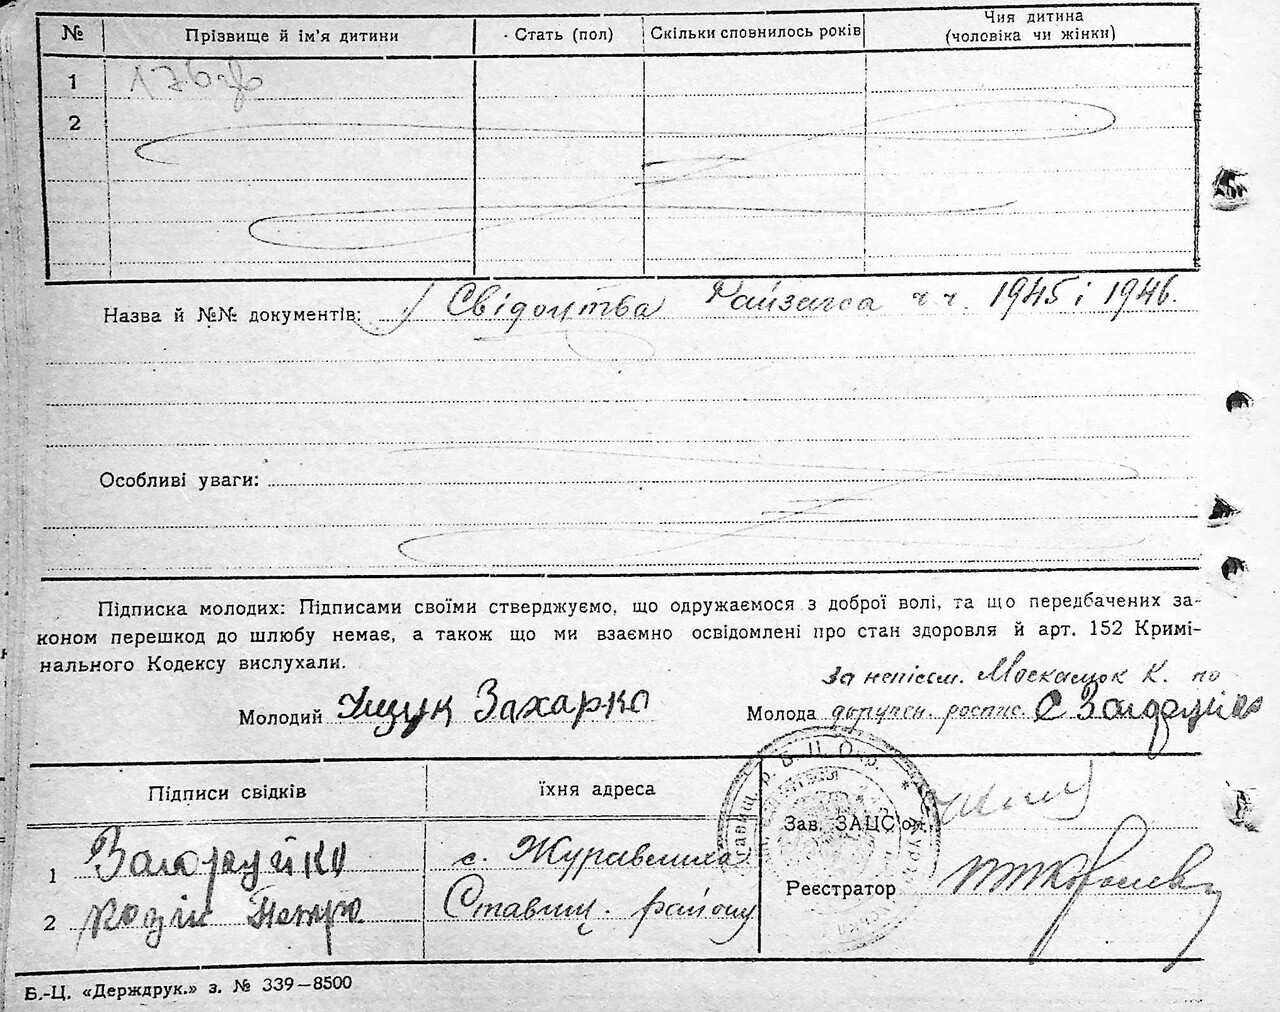 № Прізвище й ім'я дитини Стать (пол) Скільки сповнилось років Чия дитина (чоловіка чи жінки)
1
2
Назва й №№ документів: Свідоцтва Райзагса ч.ч. 1945 і 1946.
Особливі уваги:
Підписка молодих: Підписами своїми стверджуємо, що одружаємося з доброї волі, та що передбачених за-
коном перешкод до шлюбу немає, а також що ми взаємно освідомлені про стан здоровля й арт. 152 Кримі-
нального Кодексу вислухали.
За неписьм. Москалюк К. по
Молодий Іщук Захарко Молода доручен. роспис.
Підписи свідків їхня адреса
Зав. ЗАЦС'ом
1 Загоруйко с. Журавлиха
Реєстратор
2 Козій Петро Ставищ. району
Б.-Ц. «Держдрук.» з. № 339—8500